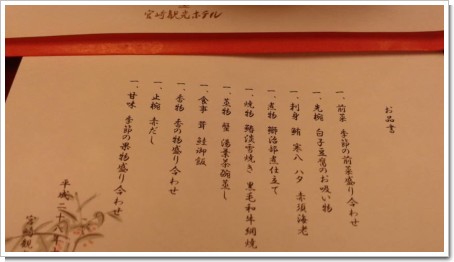 宮崎観光ホテル
お品書
一、前菜 季節の前菜盛り合わせ
一、先椀 白子豆腐のお吸い物
一、刺身 鮪 寒八 ハタ 赤須海老
一、煮物 鰤治部煮仕立て
一、焼物 鰆淡雪焼き 黒毛和牛網焼
一、蒸物 蟹 湯葉茶碗蒸し
一、食事 茸 鮭御飯
一、香物 香の物盛り合わせ
一、止椀 赤だし
一、甘味 季節の果物盛り合わせ
平成二十八年
宮崎観